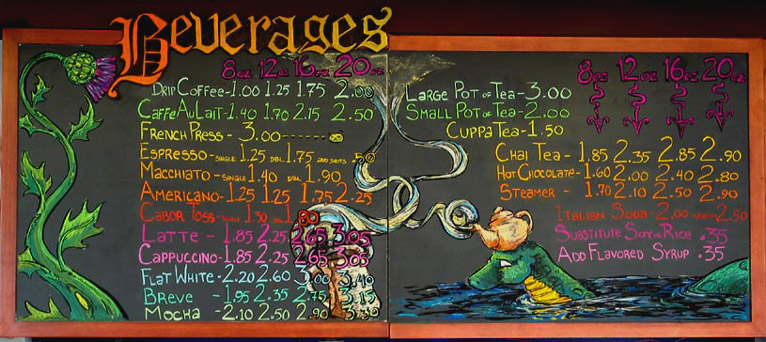 Beverages
8oz 12oz 16oz 20oz
Drip Coffee - 1.00 1.25 1.75 2.00
Caffe Au Lait - 1.40 1.70 2.15 2.50
French Press - 3.00
Espresso - single 1.25 dbl. 1.75 .50
Macchiato - single 1.40 dbl. 1.90
Americano - 1.25 1.25 1.75 2.25
Cabor Toss - 1.30 1.80
Latte - 1.85 2.25 2.65 3.05
Cappuccino - 1.85 2.25 2.65 3.05
Flat White - 2.20 2.60 3.00 3.40
Breve - 1.95 2.35 2.75 3.15
Mocha - 2.10 2.50 2.90
Large Pot of Tea - 3.00
Small Pot of Tea - 2.00
Cuppa Tea - 1.50
8oz 12oz 16oz 20oz
Chai Tea - 1.85 2.35 2.85 2.90
Hot Chocolate - 1.60 2.00 2.40 2.80
Steamer - 1.70 2.10 2.50 2.90
Italian Soda - 2.00 2.50
Substitute Soy or Rice .35
Add Flavored Syrup - .35